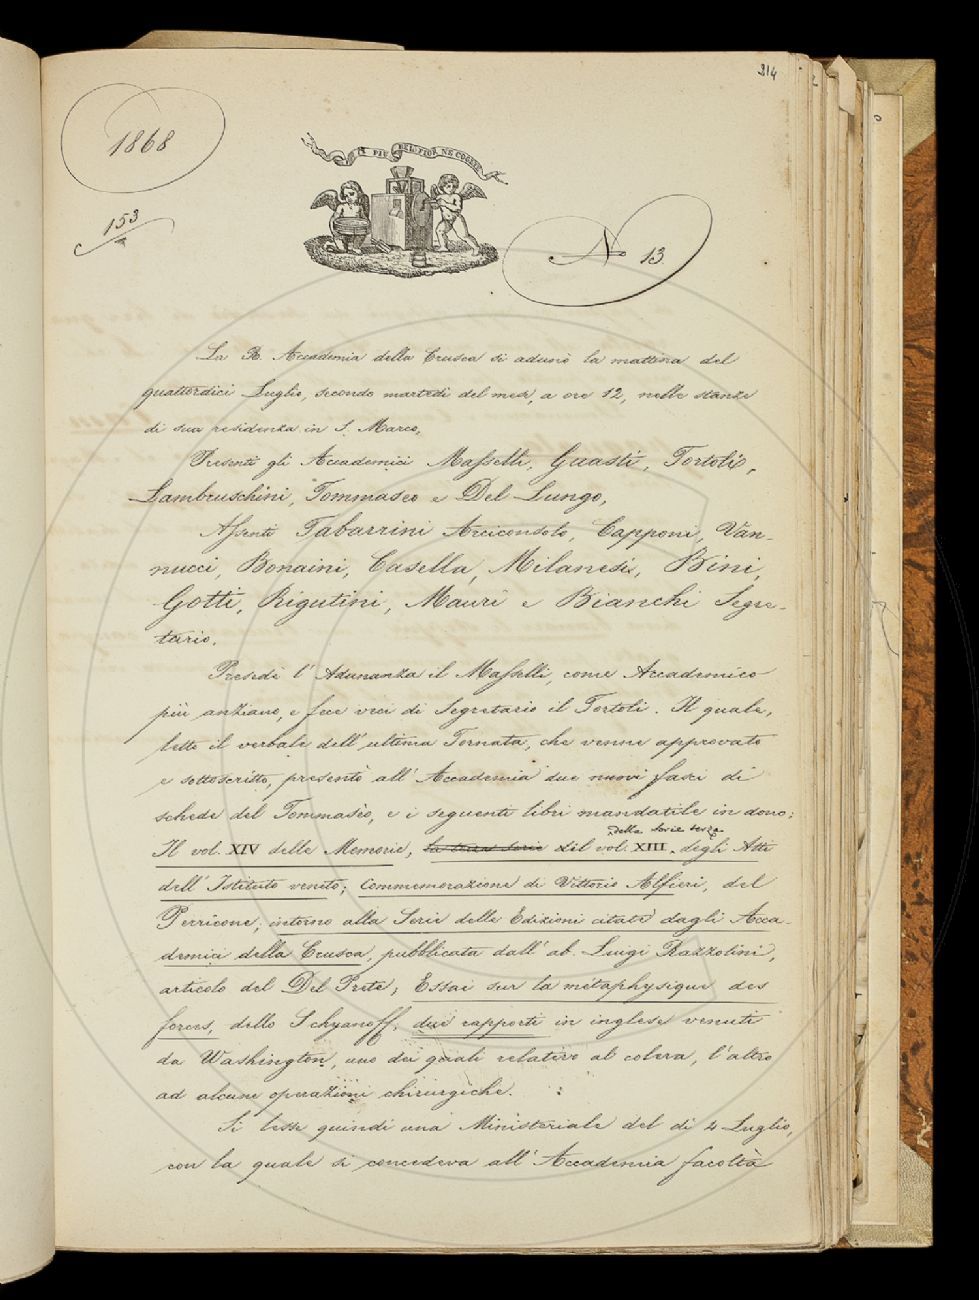 314
1868
153
IL PIÙ BEL FIOR NE COGLIE
N 13
La R. Accademia della Crusca si adunò la mattina del
quattordici Luglio, secondo martedì del mese, a ore 12, nelle stanze
di sua residenza in S. Marco,
Presenti gli Accademici Masselli, Guasti, Tortoli,
Lambruschini, Tommaseo e Del Lungo,
Assenti Tabarrini Arciconsolo, Capponi, Van-
nucci, Bonaini, Casella, Milanesi, Bini,
Gotti, Rigutini, Mauri e Bianchi Segre-
tario.
Presedè l'Adunanza il Masselli, come Accademico
più anziano, e fece veci di Segretario il Tortoli. Il quale,
letto il verbale dell'ultima Tornata, che venne approvato
e sottoscritto, presentò all'Accademia due nuovi fasci di
schede del Tommasèo, e i seguenti libri mandatile in dono:
della serie terza
Il vol. XIV delle Memorie, la terza serie e il vol. XIII degli Atti
dell'Istituto veneto; Commemorazione di Vittorio Alfieri, del
Perricone; intorno alla Serie delle Edizioni citate dagli Acca-
demici della Crusca, pubblicata dall'ab. Luigi Razzolini,
articolo del Del Prete; Essai sur la métaphysique des
forces, dello Schyanoff; due rapporti in inglese venuti
da Washington, uno dei quali relativo al colera, l'altro
ad alcune operazioni chirurgiche.
Si lesse quindi una Ministeriale del dì 4 Luglio,
con la quale si concedeva all'Accademia facoltà